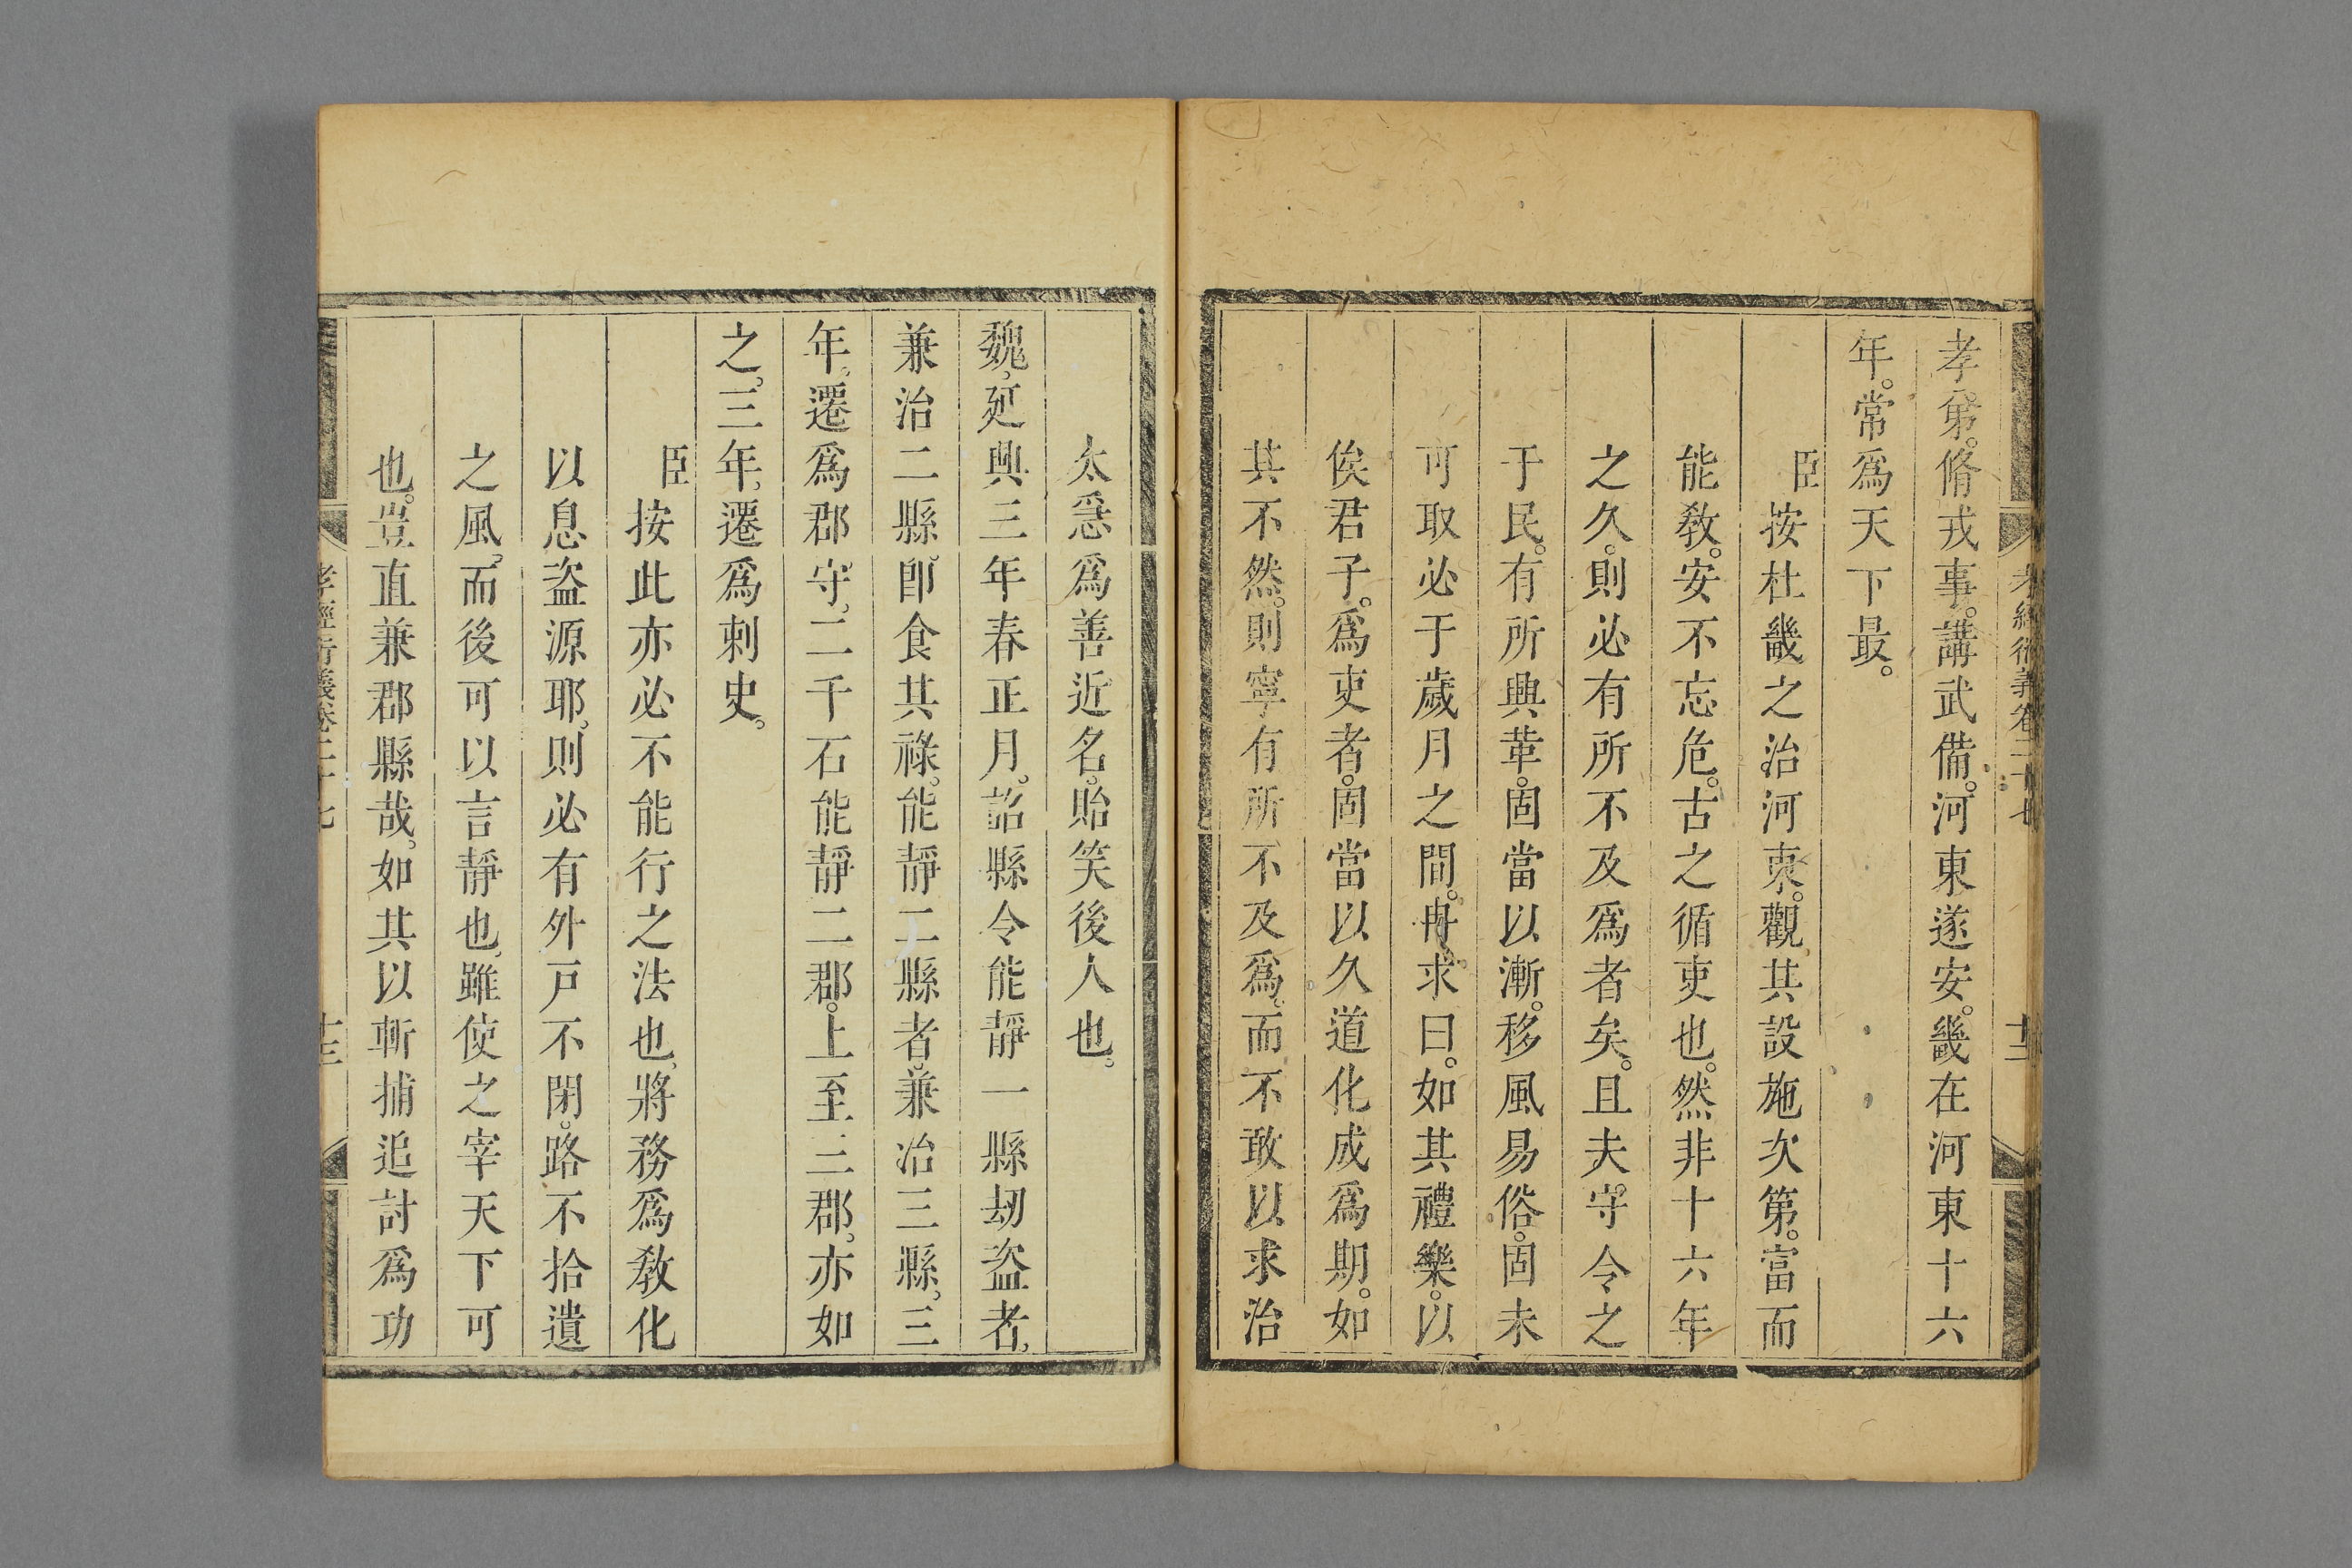 孝經衍義卷二十七
十二
孝第。脩戎事。講武備。河東遂安。畿在河東十六
年。常爲天下最。
臣按杜畿之治河東。觀其設施次第。富而
能敎。安不忘危。古之循吏也。然非十六年
之久。則必有所不及爲者矣。且夫守令之
于民。有所興革。固當以漸。移風易俗。固未
可取必于歲月之間。冉求曰。如其禮樂。以
俟君子。爲吏者。固當以久道化成爲期。如
其不然。則寧有所不及爲。而不敢以求治
太急爲善近名。貽笑後人也。
魏延興三年春正月。詔縣令能靜一縣刼盗者。
兼治二縣。卽食其祿。能靜二縣者。兼治三縣。三
年。遷爲郡守。二千石能靜二郡。上至三郡。亦如
之。三年。遷爲刺史。
臣按此亦必不能行之法也。將務爲敎化
以息盗源耶。則必有外戸不閉。路不拾遺
之風。而後可以言靜也。雖使之宰天下可
也。豈直兼郡縣哉。如其以斬捕追討爲功
孝經衍義卷二十七
十三